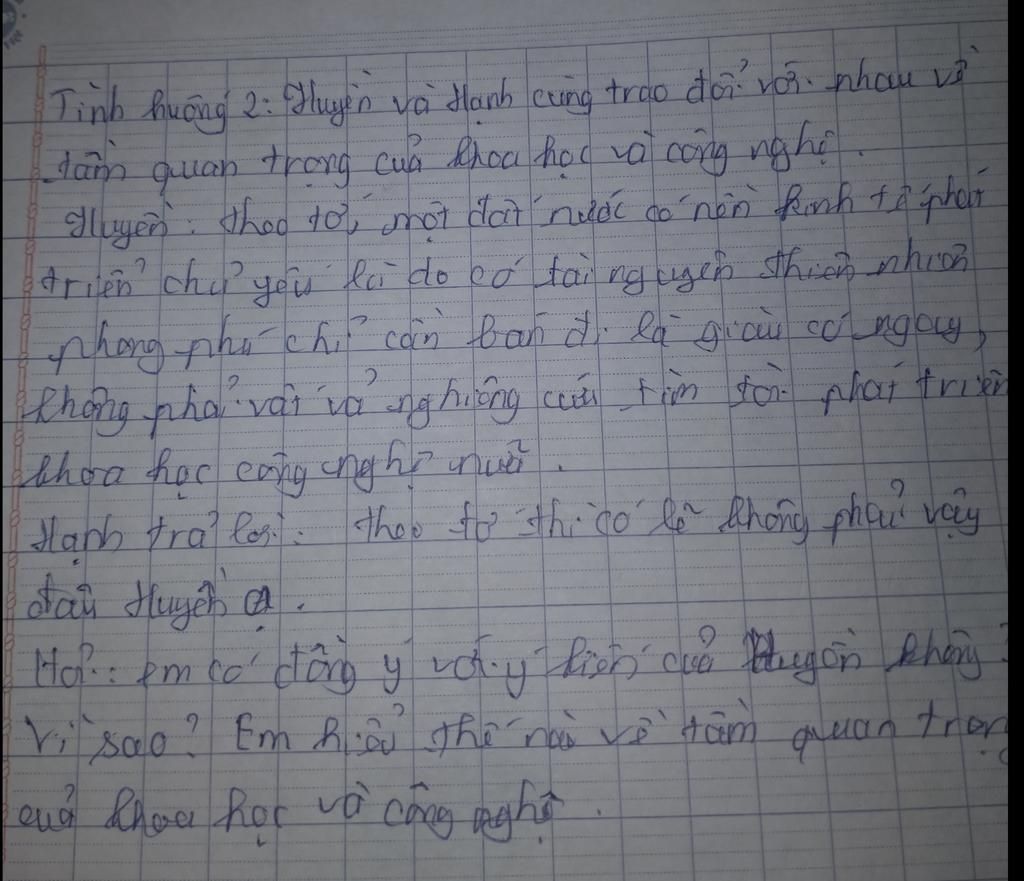 Tình huống 2: Huyền và Hạnh cùng trao đổi với nhau về
tầm quan trọng của khoa học và công nghệ.
Huyền: theo tớ, một đất nước có nền kinh tế phát
triển chủ yếu là do có tài nguyên thiên nhiên
phong phú chỉ cần bán đi là giàu có ngay,
không phải vất vả nghiêng cứu tìm tòi phát triển
khoa học công nghệ nữa.
Hạnh trả lời: theo tớ thì có lẽ không phải vậy
đâu Huyền ạ.
Hỏi: Em có đồng ý với ý kiến của Huyền không?
Vì sao? Em hiểu thế nào về tầm quan trọng
của khoa học và công nghệ.